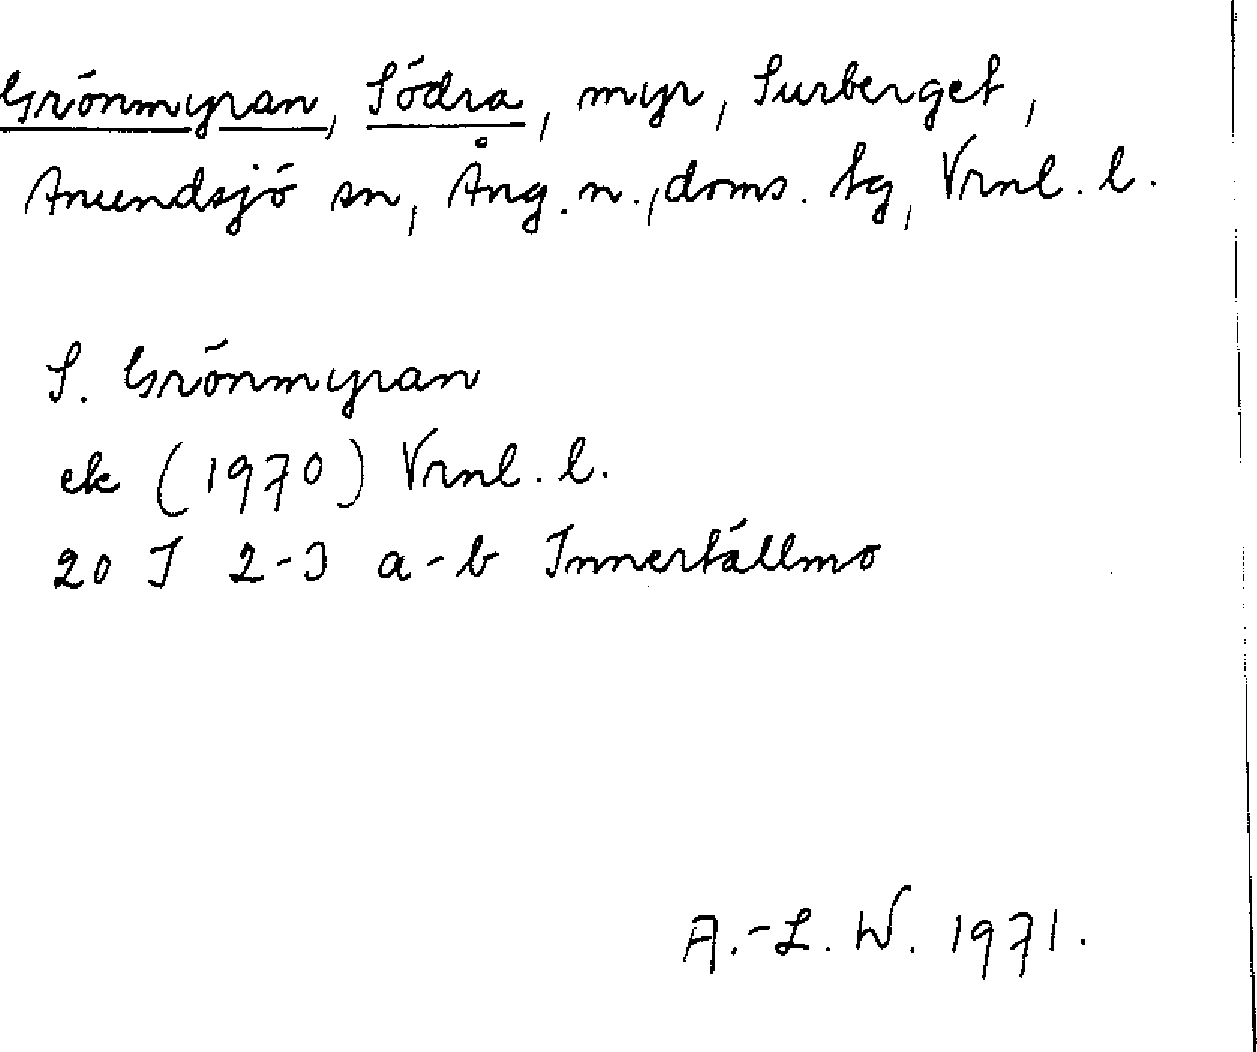 Grönmyran, Södra, myr, Surberget,
Anundsjö sn, Ång. n., doms. tg, Vrnl. l.
S. Grönmyran
ek (1970) Vrnl. l.
20 I 2-3 a-b Innertällmo
A.-L. W. 1971.